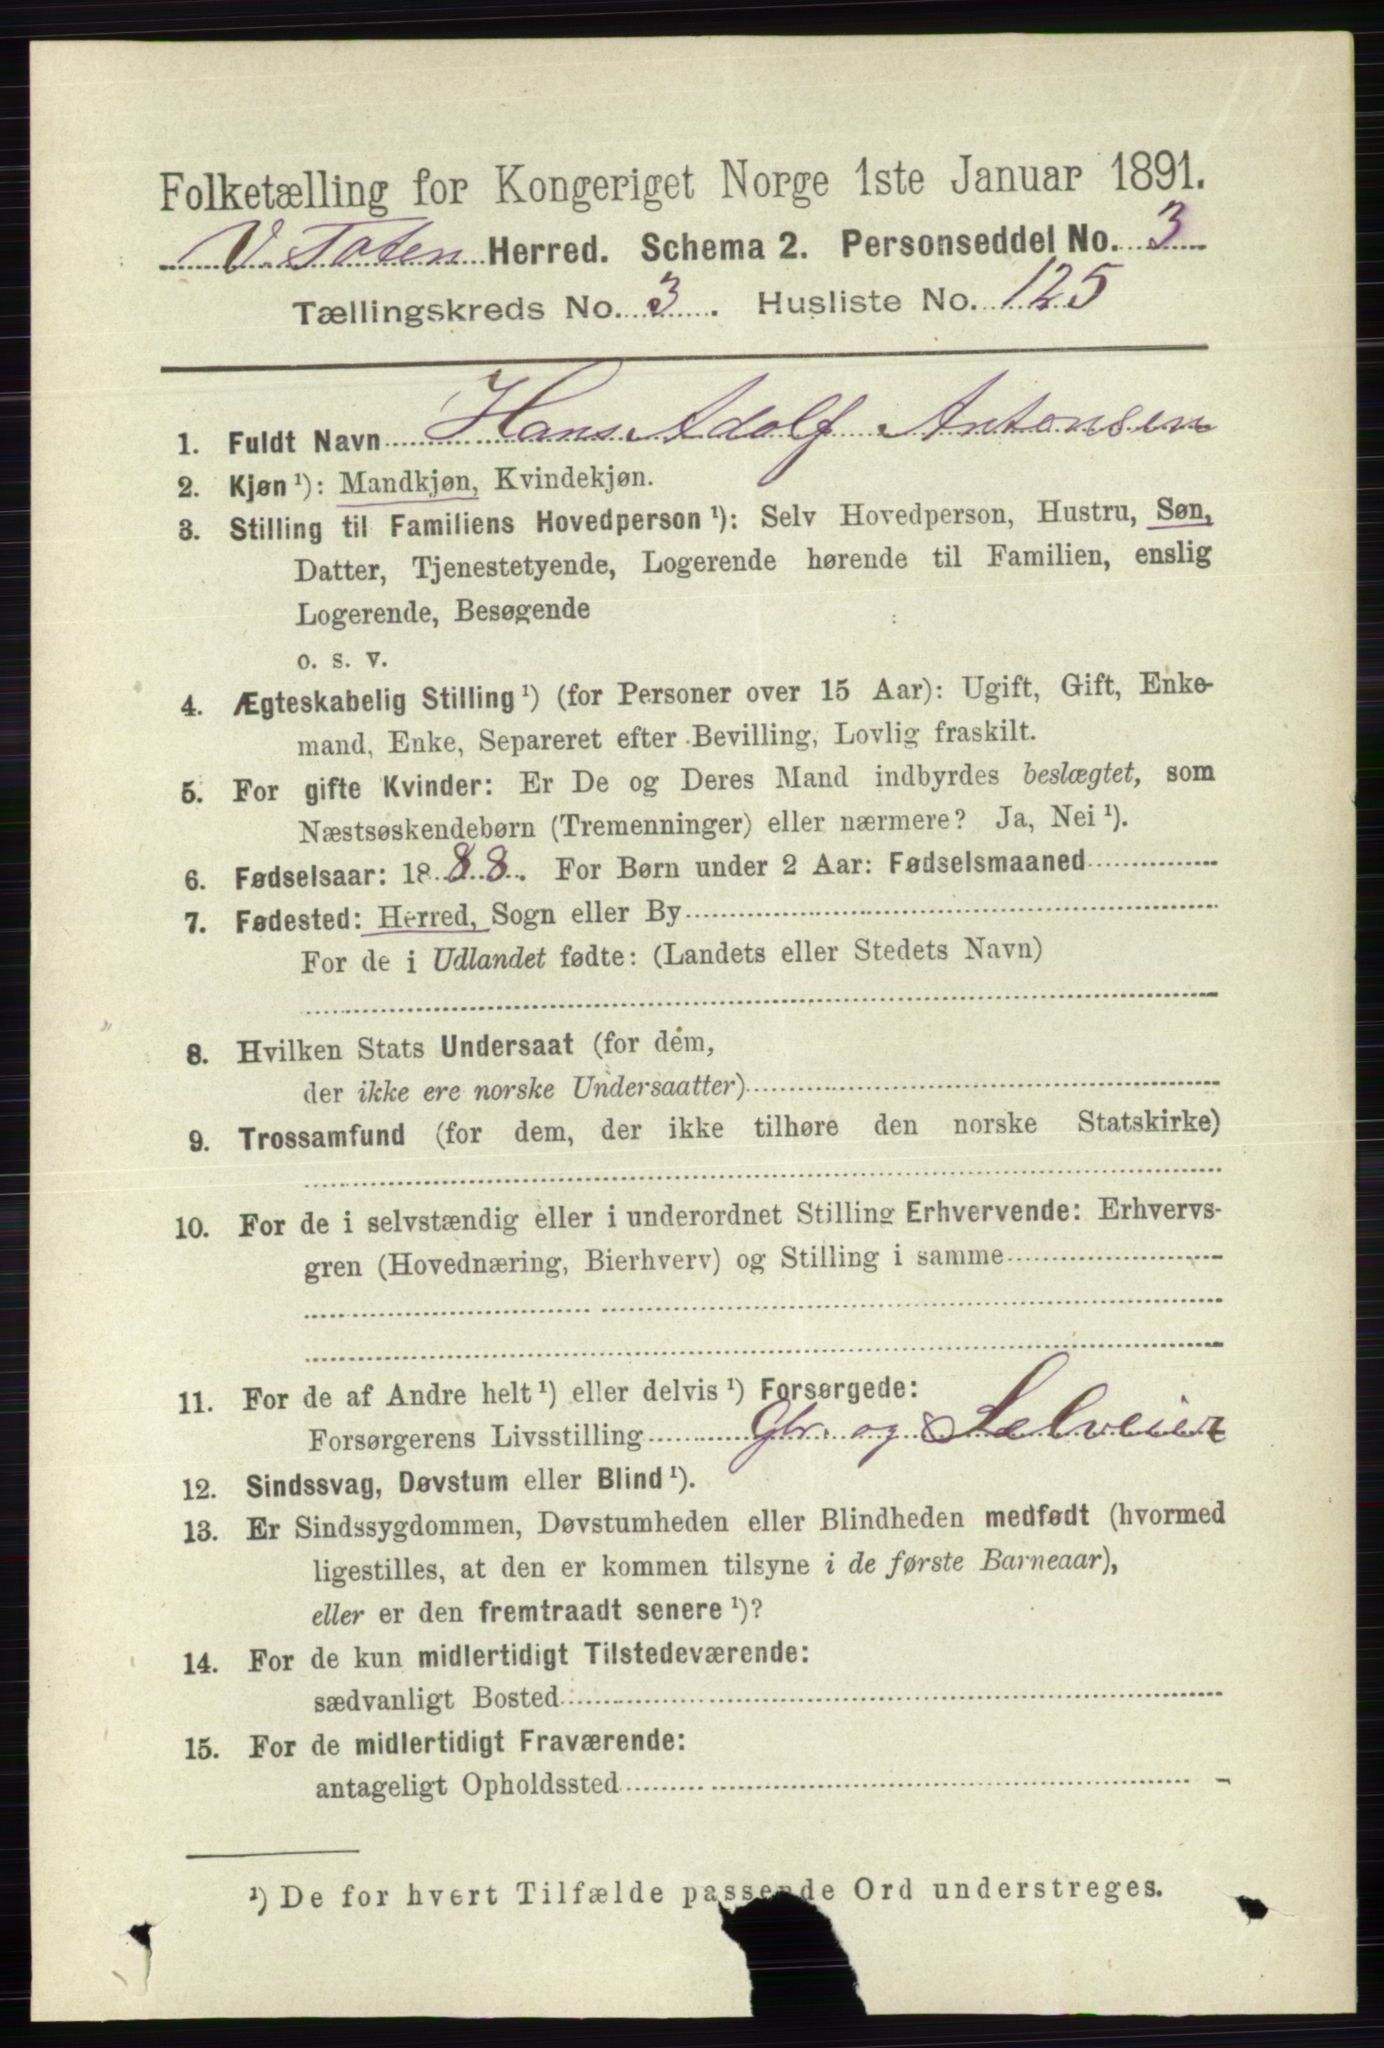 Folketælling for Kongeriget Norge 1ste Januar 1891.
V. Toten Herred. Schema 2. Personseddel No. 3
Tællingskreds No. 3. Husliste No. 125
1. Fuldt Navn Hans Adolf Antonsen
2. Kjøn ¹): Mandkjøn, Kvindekjøn.
3. Stilling til Familiens Hovedperson ¹): Selv Hovedperson, Hustru, Søn,
Datter, Tjenestetyende, Logerende hørende til Familien, enslig
Logerende, Besøgende
o. s. v.
4. Ægteskabelig Stilling ¹) (for Personer over 15 Aar): Ugift, Gift, Enke-
mand, Enke, Separeret efter Bevilling, Lovlig fraskilt.
5. For gifte Kvinder: Er De og Deres Mand indbyrdes beslægtet, som
Næstsøskendebørn (Tremenninger) eller nærmere? Ja, Nei ¹).
6. Fødselsaar: 1888. For Børn under 2 Aar: Fødselsmaaned
7. Fødested: Herred, Sogn eller By
For de i Udlandet fødte: (Landets eller Stedets Navn)
8. Hvilken Stats Undersaat (for dem,
der ikke ere norske Undersaatter)
9. Trossamfund (for dem, der ikke tilhøre den norske Statskirke)
10. For de i selvstændig eller i underordnet Stilling Erhvervende: Erhvervs-
gren (Hovednæring, Bierhverv) og Stilling i samme
11. For de af Andre helt ¹) eller delvis ¹) Forsørgede:
Forsørgerens Livsstilling Gbr. og Selveier
12. Sindssvag, Døvstum eller Blind ¹).
13. Er Sindssygdommen, Døvstumheden eller Blindheden medfødt (hvormed
ligestilles, at den er kommen tilsyne i de første Barneaar),
eller er den fremtraadt senere ¹)?
14. For de kun midlertidigt Tilstedeværende:
sædvanligt Bosted
15. For de midlertidigt Fraværende:
antageligt Opholdssted
¹) De for hvert Tilfælde passende Ord understreges.